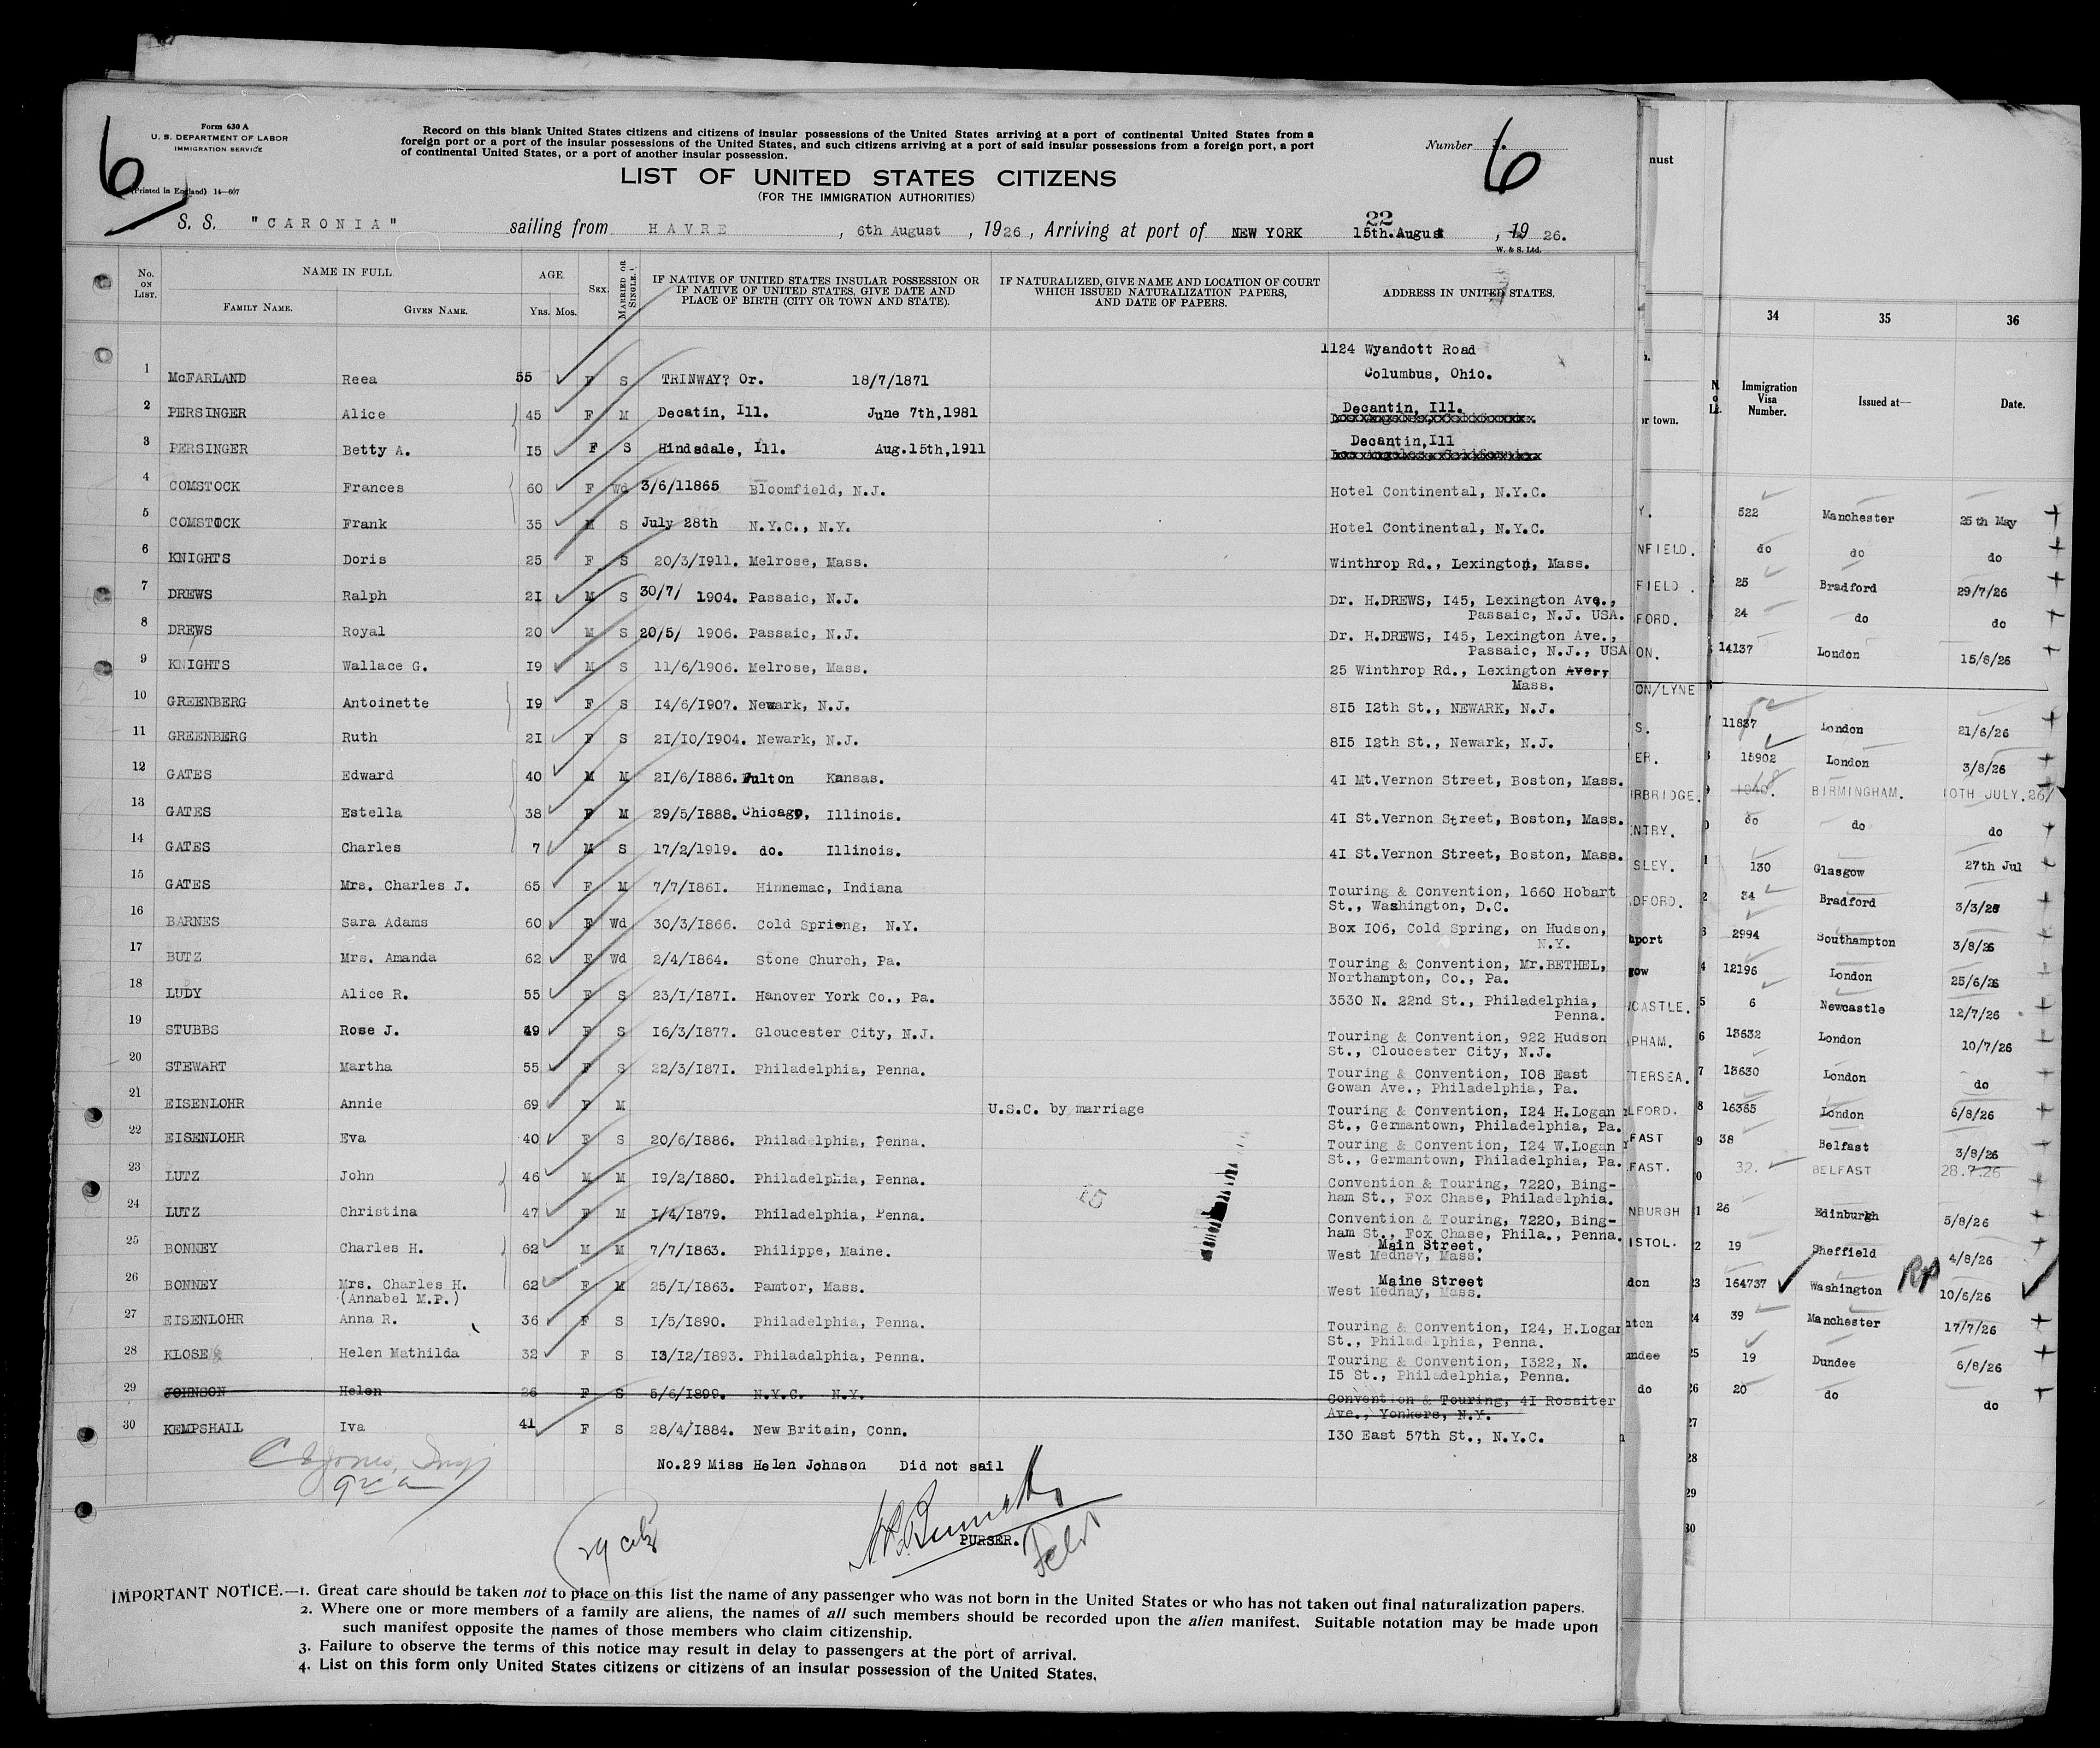 6
Form 630 A
U. S. DEPARTMENT OF LABOR
IMMIGRATION SERVICE
(Printed in England) 14—607
Record on this blank United States citizens and citizens of insular possessions of the United States arriving at a port of continental United States from a
foreign port or a port of the insular possessions of the United States, and such citizens arriving at a port of said insular possessions from a foreign port, a port
of continental United States, or a port of another insular possession.
Number 6
LIST OF UNITED STATES CITIZENS
(FOR THE IMMIGRATION AUTHORITIES)
S. S. "CARONIA" sailing from HAVRE, 6th August, 1926, Arriving at port of NEW YORK 22 15th.August, 1926.
W. & S. Ltd.
No. ON LIST. NAME IN FULL FAMILY NAME. GIVEN NAME. AGE. YRS. MOS. SEX. MARRIED OR SINGLE. IF NATIVE OF UNITED STATES INSULAR POSSESSION OR IF NATIVE OF UNITED STATES, GIVE DATE AND PLACE OF BIRTH (CITY OR TOWN AND STATE). IF NATURALIZED, GIVE NAME AND LOCATION OF COURT WHICH ISSUED NATURALIZATION PAPERS, AND DATE OF PAPERS. ADDRESS IN UNITED STATES.
1 McFARLAND Reea 55 F S TRINWAY? Or. 18/7/1871 1124 Wyandott Road
Columbus, Ohio.
2 PERSINGER Alice 45 F M Decatin, Ill. June 7th,1981 Decantin, Ill.
3 PERSINGER Betty A. I5 F S Hindsdale, Ill. Aug.15th,1911 Decantin,Ill
4 COMSTOCK Frances 60 F Wd 3/6/11865 Bloomfield, N.J. Hotel Continental, N.Y.C.
5 COMSTOCK Frank 35 M S July 28th N.Y.C., N.Y. Hotel Continental, N.Y.C.
6 KNIGHTS Doris 25 F S 20/3/I911. Melrose, Mass. Winthrop Rd., Lexington, Mass.
7 DREWS Ralph 2I M S 30/7/ 1904. Passaic, N.J. Dr. H.DREWS, I45, Lexington Ave.,
Passaic, N.J. USA.
8 DREWS Royal 20 M S 20/5/ 1906. Passaic, N.J. Dr. H.DREWS, I45, Lexington Ave.,
Passaic, N.J., USA
9 KNIGHTS Wallace G. I9 M S 11/6/1906. Melrose, Mass. 25 Winthrop Rd., Lexington Avery
Mass.
10 GREENBERG Antoinette I9 F S I4/6/I907. Newark, N.J. 8I5 I2th St., NEWARK, N.J.
11 GREENBERG Ruth 2I F S 2I/10/I904. Newark, N.J. 8I5 I2th St., Newark, N.J.
12 GATES Edward 40 M M 2I/6/I886. Fulton Kansas. 4I Mt.Vernon Street, Boston, Mass.
13 GATES Estella 38 F M 29/5/I888. Chicago, Illinois. 4I St.Vernon Street, Boston, Mass.
14 GATES Charles 7 M S I7/2/I919. do. Illinois. 4I St.Vernon Street, Boston, Mass.
15 GATES Mrs. Charles J. 65 F M 7/7/I86I. Hinnemac, Indiana Touring & Convention, 1660 Hobart
St., Washington, D.C.
16 BARNES Sara Adams 60 F Wd 30/3/I866. Cold Sprieng, N.Y. Box I06, Cold Spring, on Hudson,
N.Y.
17 BUTZ Mrs. Amanda 62 F Wd 2/4/I864. Stone Church, Pa. Touring & Convention, Mr.BETHEL,
Northampton, Co., Pa.
18 LUDY Alice R. 55 F S 23/I/I87I. Hanover York Co., Pa. 3530 N. 22nd St., Philadelphia,
Penna.
19 STUBBS Rose J. 49 F S I6/3/I877. Gloucester City, N.J. Touring & Convention, 922 Hudson
St., Cloucester City, N.J.
20 STEWART Martha 55 F S 22/3/I87I. Philadelphia, Penna. Touring & Convention, I08 East
Gowan Ave., Philadelphia, Pa.
21 EISENLOHR Annie 69 F M U.S.C. by marriage Touring & Convention, I24 H.Logan
St., Germantown, Philadelphia, Pa.
22 EISENLOHR Eva 40 F S 20/6/I886. Philadelphia, Penna. Touring & Convention, I24 W.Logan
St., Germantown, Philadelphia, Pa.
23 LUTZ John 46 M M I9/2/I880. Philadelphia, Penna. Convention & Touring, 7220, Bing-
ham St., Fox Chase, Philadelphia.
24 LUTZ Christina 47 F M I/4/I879. Philadelphia, Penna. Convention & Touring, 7220, Bing-
ham St., Fox Chase, Phila., Penna.
25 BONNEY Charles H. 62 M M 7/7/I863. Philippe, Maine. Main Street,
West Mednay, Mass.
26 BONNEY Mrs. Charles H. 62 F M 25/I/I863. Pamtor, Mass. Maine Street
(Annabel M.P.) West Mednay, Mass.
27 EISENLOHR Anna R. 36 F S I/5/I890. Philadelphia, Penna. Touring & Convention, I24, H.Logan
St., Philadelphia, Penna.
28 KLOSE Helen Mathilda 32 F S I3/I2/I893. Philadalphia, Penna. Touring & Convention, I322, N.
I5 St., Philadelphia, Penna.
29 JOHNSON Helen 26 F S 5/6/I899. N.Y.C. N.Y. Convention & Touring, 4I Rossiter
Ave., Yonkers, N.Y.
30 KEMPSHALL Iva 41 F S 28/4/I884. New Britain, Conn. I30 East 57th St., N.Y.C.
No.29 Miss Helen Johnson Did not sail
PURSER.
IMPORTANT NOTICE.—1. Great care should be taken not to place on this list the name of any passenger who was not born in the United States or who has not taken out final naturalization papers.
2. Where one or more members of a family are aliens, the names of all such members should be recorded upon the alien manifest. Suitable notation may be made upon
such manifest opposite the names of those members who claim citizenship.
3. Failure to observe the terms of this notice may result in delay to passengers at the port of arrival.
4. List on this form only United States citizens or citizens of an insular possession of the United States.
must
34 35 36
Immigration Visa Number. Issued at— Date.
or town.
Y. 522 Manchester 25th May
NFIELD. do do do
FIELD. 25 Bradford 29/7/26
FORD. 24 do do
ON. 14137 London 15/8/26
ON/LYNE
S. 11837 London 21/6/26
ER. 15902 London 3/8/26
RBRIDGE. BIRMINGHAM. 10TH JULY.26
NTRY. do do do
SLEY. 130 Glasgow 27th Jul
DFORD. 34 Bradford 3/3/26
port 2994 Southampton 3/8/26
gow 12196 London 25/6/26
CASTLE. 6 Newcastle 12/7/26
PHAM. 13632 London 10/7/26
TERSEA. 13630 London do
LFORD. 16365 London 6/8/26
FAST 38 Belfast 3/8/26
FAST. 32. BELFAST 28.7.26
NBURGH 26 Edinburgh 5/8/26
ISTOL. 19 Sheffield 4/8/26
don 164737 Washington 10/6/26
ton 39 Manchester 17/7/26
ndee 19 Dundee 6/8/26
do 20 do do
27
28
29
30